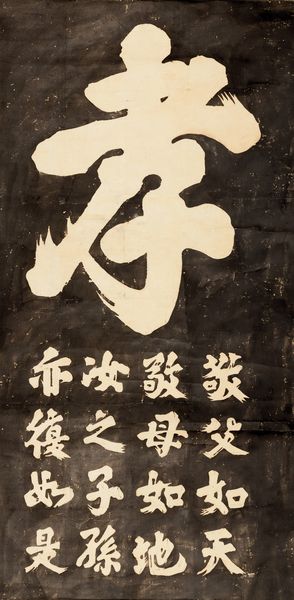 孝
敬父如天
敬母如地
汝之子孫
亦復如是